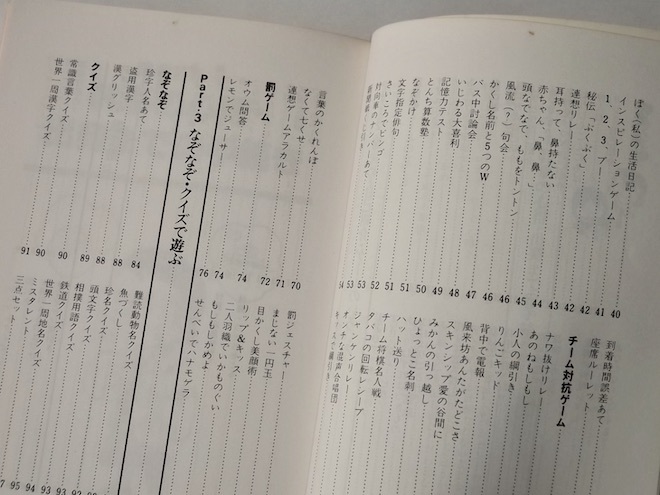 ぼく(私)の生活日記
インスピレーションゲーム
1、2、3、ブー
秘伝「ぷくぷく」
連想リレー
耳持って、鼻持たない
赤ちゃん、「鼻、鼻…」
頭なでなで、ももをトントン
風流(?)句会
かくし名前と5つのW
バス中討論会
いじわる大喜利
記憶力テスト
とんち算数塾
なぞかけ
文字指定俳句
さいころでビンゴ
対向車のナンバーあて
40
41
42
42
43
44
45
46
46
47
48
48
49
50
51
51
52
53
53
54
到着時間誤差あて
座席ルーレット
チーム対抗ゲーム
ナワ抜けリレー
あのねもしもし
小人の綱引き
りんごキッド
背中で電報
風来坊あんたがたどこさ
スキンシップ愛の谷間に
みかんの引っ越し
ひょっとこ名刺
ハット送り
チーム将棋名人戦
タバコの回転レシーブ
ジャンケンリレー
オンチな混声合唱団
言葉のかくれんぼ 70
なくて七くせ 71
連想ゲームアラカルト 72
罰ゲーム
オウム問答 74
レモンでジューサー 74
Part・3 なぞなぞ・クイズで遊ぶ 76
なぞなぞ
珍字人名あて 84
盗用漢字 88
漢グリッシュ 88
クイズ 89
常識言葉クイズ 90
世界一周漢字クイズ 90
91
罰ジェスチャー
まじない一円玉
目かくし美顔術
リップ&キッス
二人羽織でいかものぐい
もしもしかめよ
せんべいでハナモゲラ
難読動物名クイズ
魚づくし
珍名クイズ
頭文字クイズ
相撲用語クイズ
鉄道クイズ
世界一周地名クイズ
ミスタレント
三点セット
92
93
93
94
95